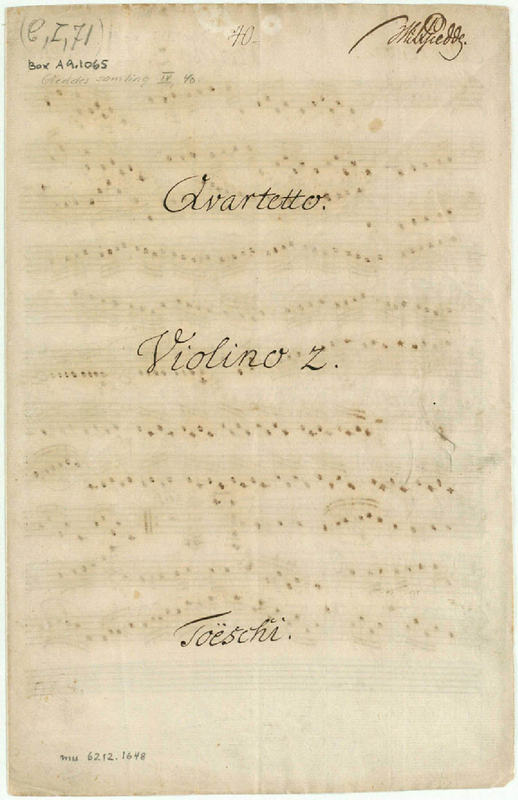 (C, I, 71)
40
Box A9.1065
Gieddes samling IV, 40
Qvartetto.
Violino 2.
Toëschi.
mu 6212.1648